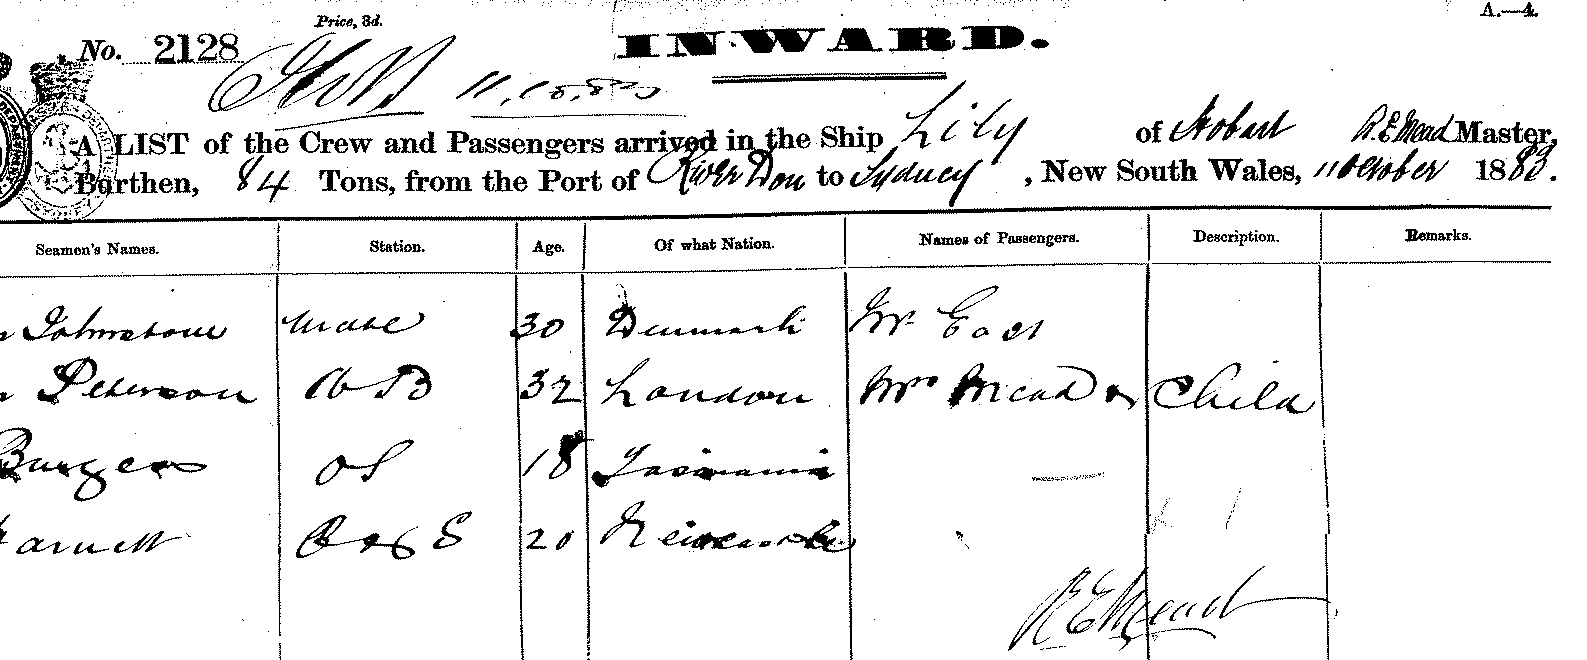 Price, 3d.
A.—4.
No. 2128
INWARD.
A LIST of the Crew and Passengers arrived in the Ship Lily of Hobart R.E. Mead Master,
Burthen, 84 Tons, from the Port of River Don to Sydney, New South Wales, 11 October 1883.
Seamen's Names. Station. Age. Of what Nation. Names of Passengers. Description. Remarks.
Johnstone Mate 30 Denmark Mr East
Peterson AB 32 London Mrs Mead & Child
Burgess OS 18 Tasmania
20 Newcastle
R E Mead